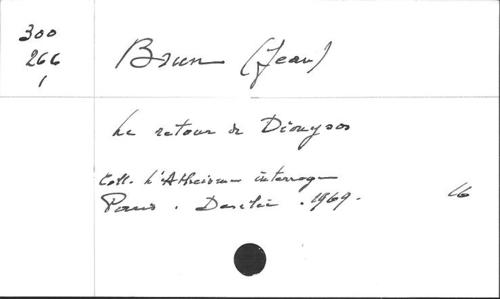 300
266
1
Brun (Jean)
Le retour de Dionysos
Coll. L'Athéisme interroge
Paris. Desclée. 1969.
16